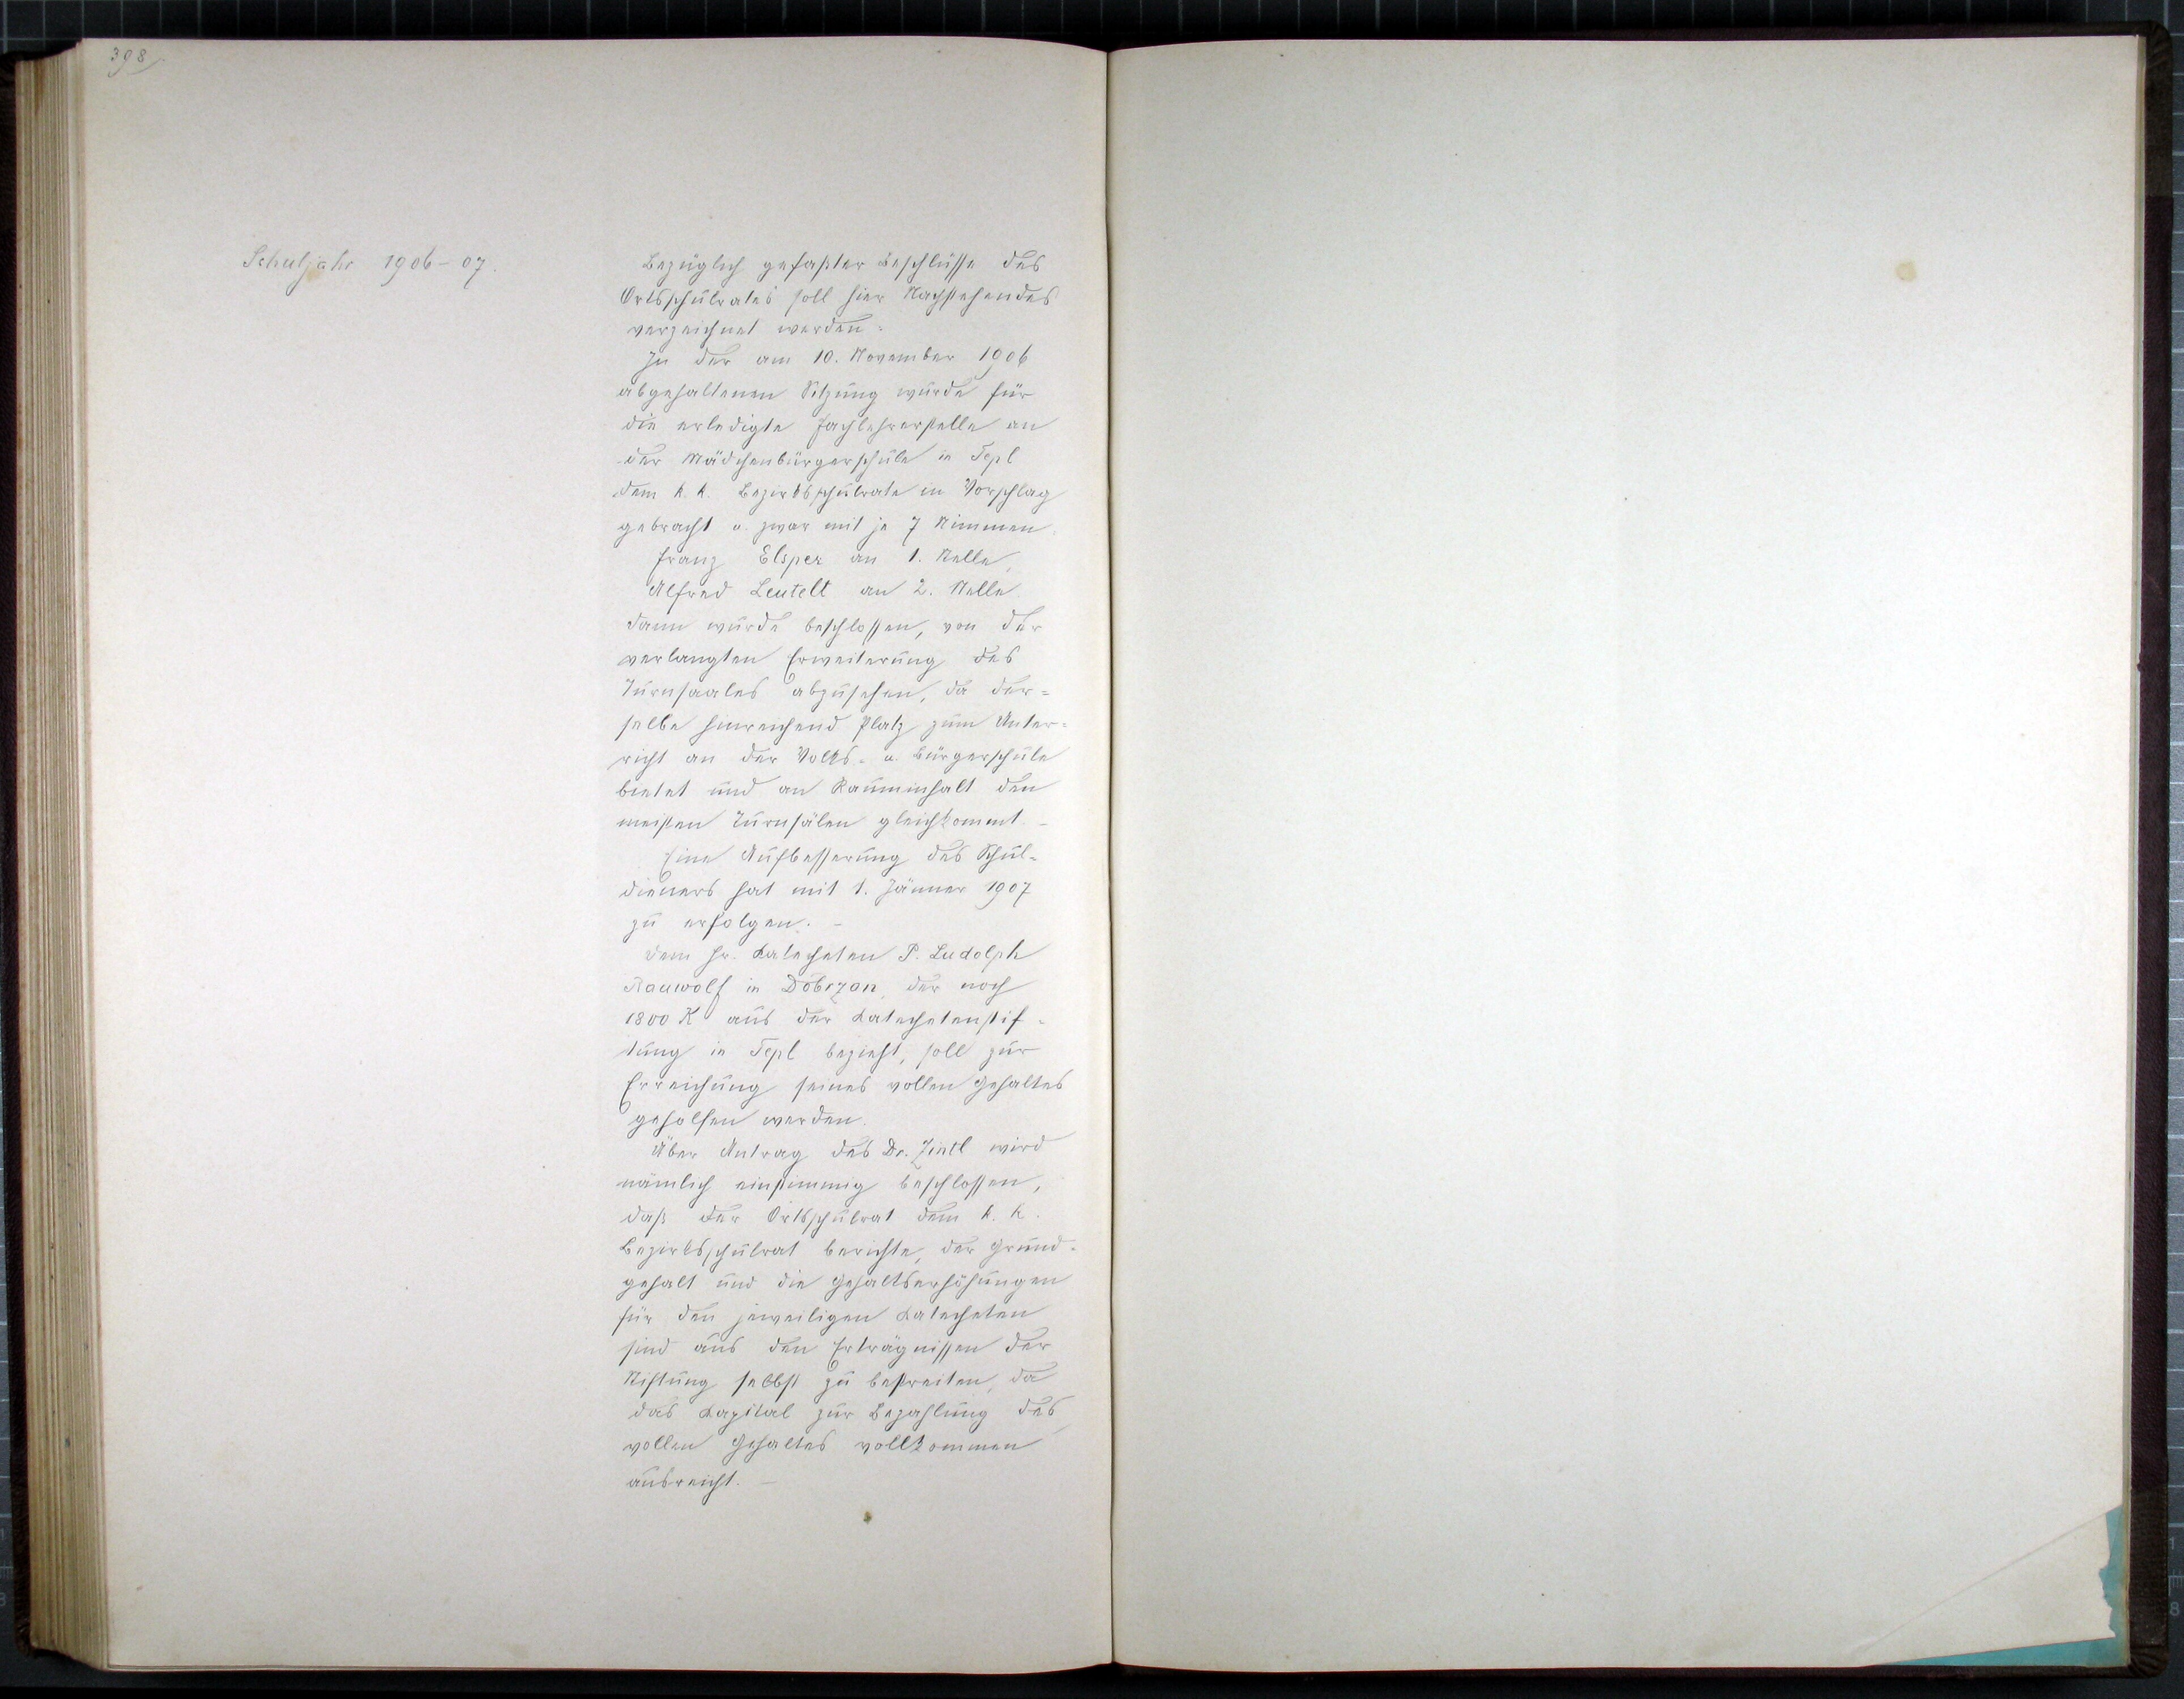 398
Schuljahr 1906-07.
Bezüglich gefaßter Beschlüsse des
Ortsschulrates soll hier Nachstehendes
verzeichnet werden:
In der am 10. November 1906
abgehaltenen Sitzung wurde für
die erledigte Fachlehrerstelle an
der Mädchenbürgerschule in Tepl
dem k. k. Bezirksschulrate in Vorschlag
gebracht u. zwar mit je 7 Stimmen
Franz Elsper an 1. Stelle,
Alfred Leutelt an 2. Stelle.
Dann wurde beschlossen, von der
verlangten Erweiterung des
Turnsaales abzusehen, da der=
selbe hinreichend Platz zum Unter=
richt an der Volks- u. Bürgerschule
bietet und an Rauminhalt den
meisten Turnsälen gleichkommt. –
Eine Aufbesserung des Schul-
dieners hat mit 1. Jänner 1907
zu erfolgen. –
Dem Hr. Katecheten P. Ludolph
Rauwolf in Dobrzan, der noch
1800 K aus der Katechetenstif-
tung in Tepl bezieht, soll zur
Erreichung seines vollen Gehaltes
geholfen werden.
Über Antrag des Dr. Zintl wird
nämlich einstimmig beschlossen,
daß der Ortsschulrat dem k. k.
Bezirksschulrat berichte, der Grund-
gehalt und die Gehaltserhöhungen
für den jeweiligen Katecheten
sind aus den Erträgnissen der
Stiftung selbst zu bestreiten, da
das Kapital zur Bezahlung des
vollen Gehaltes vollkommen
ausreicht. –